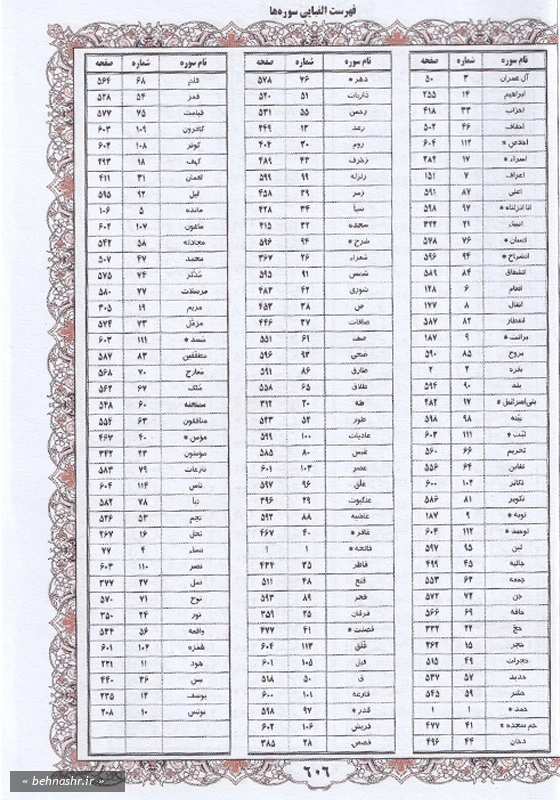 فهرست الفبایی سوره‌ها
نام سوره شماره صفحه
آل عمران ۳ ۵۰
ابراهیم ۱۴ ۲۵۵
احزاب ۳۳ ۴۱۸
احقاف ۴۶ ۵۰۲
اخلاص * ۱۱۲ ۶۰۴
اسراء * ۱۷ ۲۸۲
اعراف ۷ ۱۵۱
اعلی ۸۷ ۵۹۱
انا انزلناه * ۹۷ ۵۹۸
انبیاء ۲۱ ۳۲۲
انسان * ۷۶ ۵۷۸
انشراح * ۹۴ ۵۹۶
انشقاق ۸۴ ۵۸۹
انعام ۶ ۱۲۸
انفال ۸ ۱۷۷
انفطار ۸۲ ۵۸۷
برائت * ۹ ۱۸۷
بروج ۸۵ ۵۹۰
بقره ۲ ۲
بلد ۹۰ ۵۹۴
بنی‌اسرائیل * ۱۷ ۲۸۲
بینه ۹۸ ۵۹۸
تبّت * ۱۱۱ ۶۰۳
تحریم ۶۶ ۵۶۰
تغابن ۶۴ ۵۵۶
تکاثر ۱۰۲ ۶۰۰
تکویر ۸۱ ۵۸۶
توبه * ۹ ۱۸۷
توحید * ۱۱۲ ۶۰۴
تین ۹۵ ۵۹۷
جاثیه ۴۵ ۴۹۹
جمعه ۶۲ ۵۵۳
جن ۷۲ ۵۷۲
حاقه ۶۹ ۵۶۶
حجّ ۲۲ ۳۳۲
حجر ۱۵ ۲۶۲
حجرات ۴۹ ۵۱۵
حدید ۵۷ ۵۳۷
حشر ۵۹ ۵۴۵
حمد * ۱ ۱
حم سجده * ۴۱ ۴۷۷
دخان ۴۴ ۴۹۶
نام سوره شماره صفحه
دهر * ۷۶ ۵۷۸
ذاریات ۵۱ ۵۲۰
رحمن ۵۵ ۵۳۱
رعد ۱۳ ۲۴۹
روم ۳۰ ۴۰۴
زخرف ۴۳ ۴۸۹
زلزله ۹۹ ۵۹۹
زمر ۳۹ ۴۵۸
سبأ ۳۴ ۴۲۸
سجده ۳۲ ۴۱۵
شرح * ۹۴ ۵۹۶
شعراء ۲۶ ۳۶۷
شمس ۹۱ ۵۹۵
شوری ۴۲ ۴۸۳
ص ۳۸ ۴۵۳
صافات ۳۷ ۴۴۶
صف ۶۱ ۵۵۱
ضحی ۹۳ ۵۹۶
طارق ۸۶ ۵۹۱
طلاق ۶۵ ۵۵۸
طه ۲۰ ۳۱۲
طور ۵۲ ۵۲۳
عادیات ۱۰۰ ۵۹۹
عبس ۸۰ ۵۸۵
عصر ۱۰۳ ۶۰۱
علق ۹۶ ۵۹۷
عنکبوت ۲۹ ۳۹۶
غاشیه ۸۸ ۵۹۲
غافر * ۴۰ ۴۶۷
فاتحه * ۱ ۱
فاطر ۳۵ ۴۳۴
فتح ۴۸ ۵۱۱
فجر ۸۹ ۵۹۳
فرقان ۲۵ ۳۵۹
فصلت * ۴۱ ۴۷۷
فلق ۱۱۳ ۶۰۴
فیل ۱۰۵ ۶۰۱
ق ۵۰ ۵۱۸
قارعه ۱۰۱ ۶۰۰
قدر * ۹۷ ۵۹۸
قریش ۱۰۶ ۶۰۲
قصص ۲۸ ۳۸۵
نام سوره شماره صفحه
قلم ۶۸ ۵۶۴
قمر ۵۴ ۵۲۸
قیامت ۷۵ ۵۷۷
کافرون ۱۰۹ ۶۰۳
کوثر ۱۰۸ ۶۰۲
کهف ۱۸ ۲۹۳
لقمان ۳۱ ۴۱۱
لیل ۹۲ ۵۹۵
مائده ۵ ۱۰۶
ماعون ۱۰۷ ۶۰۲
مجادله ۵۸ ۵۴۲
محمد ۴۷ ۵۰۷
مدّثر ۷۴ ۵۷۵
مرسلات ۷۷ ۵۸۰
مریم ۱۹ ۳۰۵
مزمّل ۷۳ ۵۷۴
مسد * ۱۱۱ ۶۰۳
مطففین ۸۳ ۵۸۷
معارج ۷۰ ۵۶۸
ملک ۶۷ ۵۶۲
ممتحنه ۶۰ ۵۴۸
منافقون ۶۳ ۵۵۴
مؤمن * ۴۰ ۴۶۷
مؤمنون ۲۳ ۳۴۲
نازعات ۷۹ ۵۸۳
ناس ۱۱۴ ۶۰۴
نبأ ۷۸ ۵۸۲
نجم ۵۳ ۵۲۶
نحل ۱۶ ۲۶۷
نساء ۴ ۷۷
نصر ۱۱۰ ۶۰۳
نمل ۲۷ ۳۷۷
نوح ۷۱ ۵۷۰
نور ۲۴ ۳۵۰
واقعه ۵۶ ۵۳۴
همزه ۱۰۴ ۶۰۱
هود ۱۱ ۲۲۱
یس ۳۶ ۴۴۰
یوسف ۱۲ ۲۳۵
یونس ۱۰ ۲۰۸
۶۰۶
« behnashr.ir »